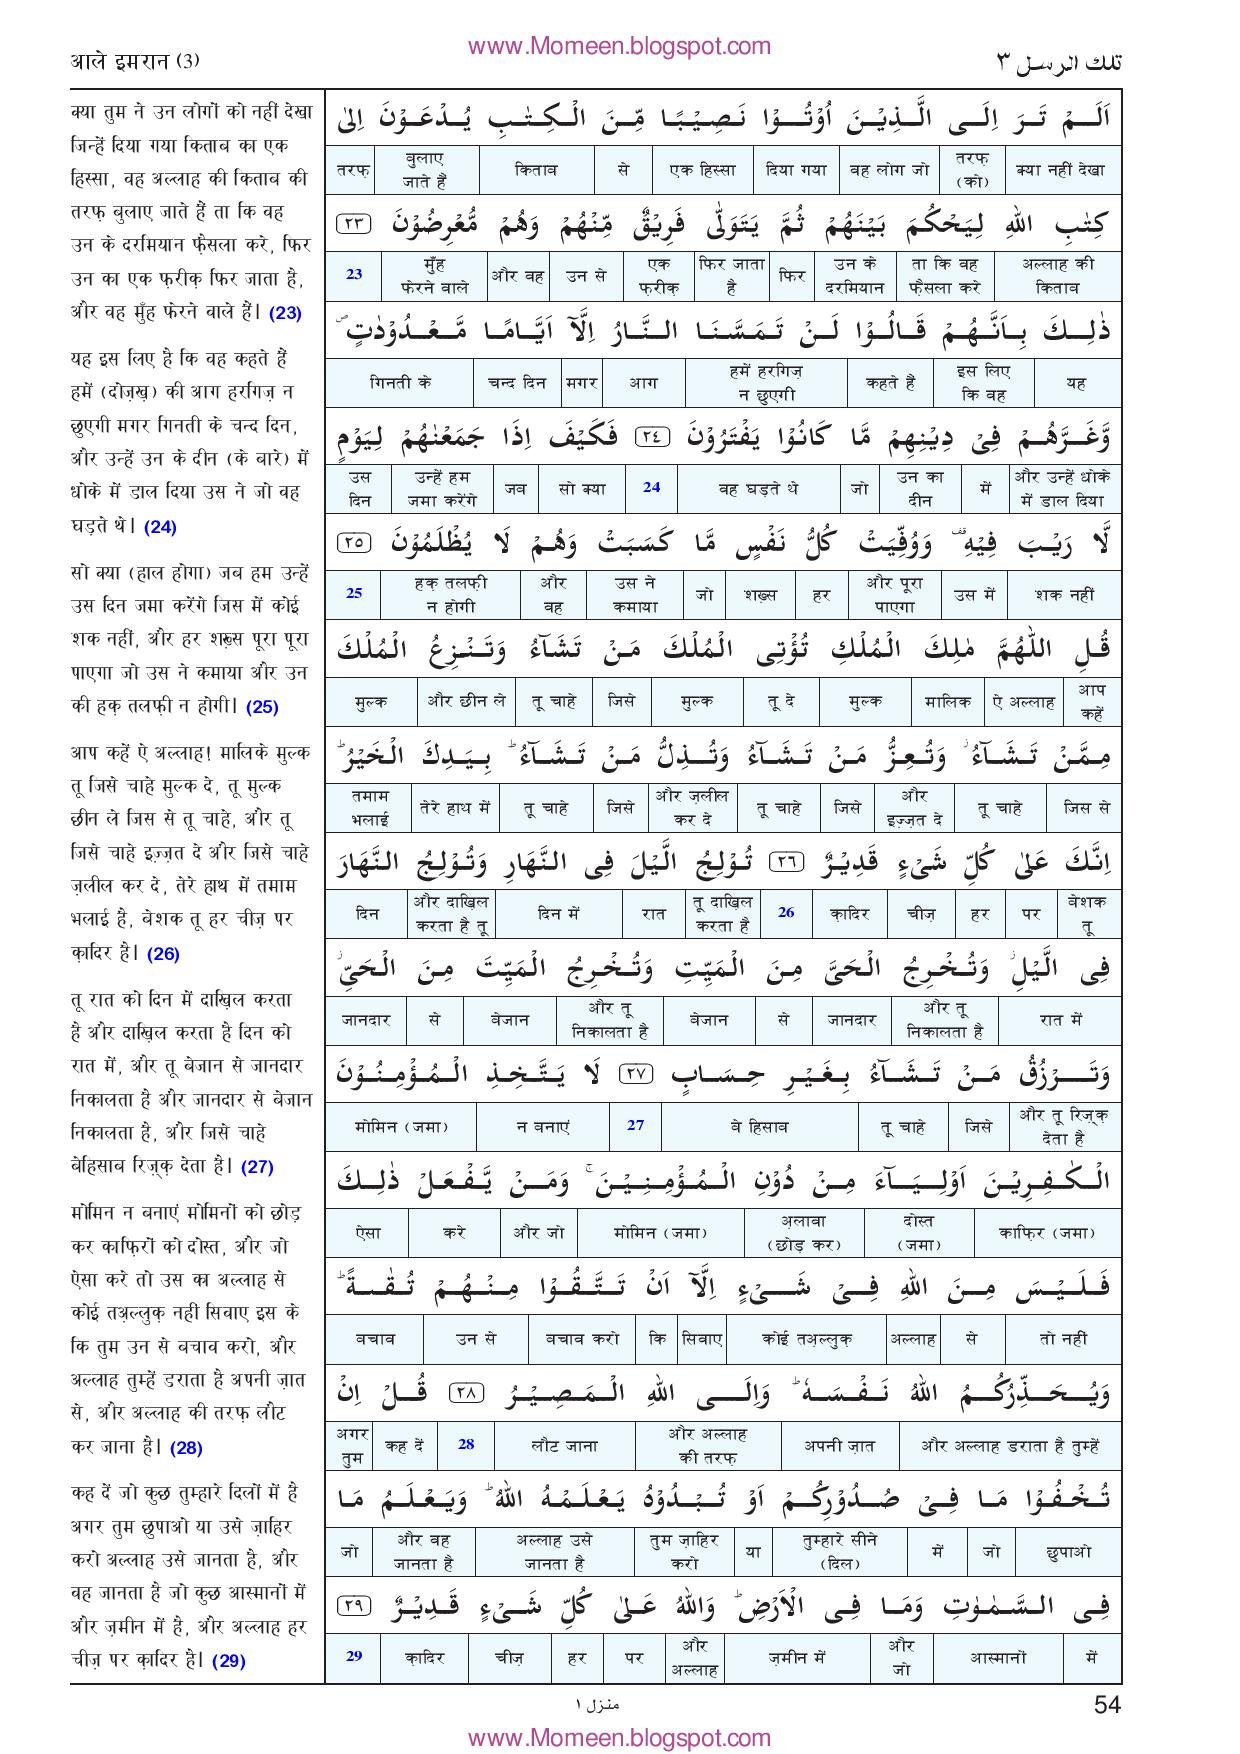 www.Momeen.blogspot.com
आले इमरान (3)
تلك الرسل ٣
क्या तुम ने उन लोगों को नहीं देखा
जिन्हें दिया गया किताब का एक
हिस्सा, वह अल्लाह की किताब की
तरफ़ बुलाए जाते हैं ता कि वह
उन के दरमियान फ़ैसला करे, फिर
उन का एक फ़रीक़ फिर जाता है,
और वह मुँह फेरने वाले हैं। (23)
यह इस लिए है कि वह कहते हैं
हमें (दोज़ख़) की आग हरगिज़ न
छुएगी मगर गिनती के चन्द दिन,
और उन्हें उन के दीन (के बारे) में
धोके में डाल दिया उस ने जो वह
घड़ते थे। (24)
सो क्या (हाल होगा) जब हम उन्हें
उस दिन जमा करेंगे जिस में कोई
शक नहीं, और हर शख़्स पूरा पूरा
पाएगा जो उस ने कमाया और उन
की हक़ तलफ़ी न होगी। (25)
आप कहें ऐ अल्लाह! मालिके मुल्क
तू जिसे चाहे मुल्क दे, तू मुल्क
छीन ले जिस से तू चाहे, और तू
जिसे चाहे इज़्ज़त दे और जिसे चाहे
ज़लील कर दे, तेरे हाथ में तमाम
भलाई है, बेशक तू हर चीज़ पर
क़ादिर है। (26)
तू रात को दिन में दाख़िल करता
है और दाख़िल करता है दिन को
रात में, और तू बेजान से जानदार
निकालता है और जानदार से बेजान
निकालता है, और जिसे चाहे
बेहिसाब रिज़्क़ देता है। (27)
मोमिन न बनाएं मोमिनों को छोड़
कर काफ़िरों को दोस्त, और जो
ऐसा करे तो उस का अल्लाह से
कोई तअ़ल्लुक़ नहीं सिवाए इस के
कि तुम उन से बचाव करो, और
अल्लाह तुम्हें डराता है अपनी ज़ात
से, और अल्लाह की तरफ़ लौट
कर जाना है। (28)
कह दें जो कुछ तुम्हारे दिलों में है
अगर तुम छुपाओ या उसे ज़ाहिर
करो अल्लाह उसे जानता है, और
वह जानता है जो कुछ आस्मानों में
और ज़मीन में है, और अल्लाह हर
चीज़ पर क़ादिर है। (29)
اَلَمْ تَرَ اِلَى الَّذِيْنَ اُوْتُوْا نَصِيْبًا مِّنَ الْكِتٰبِ يُدْعَوْنَ اِلٰى
तरफ़ | बुलाए जाते हैं | किताब | से | एक हिस्सा | दिया गया | वह लोग जो | तरफ़ (को) | क्या नहीं देखा
كِتٰبِ اللهِ لِيَحْكُمَ بَيْنَهُمْ ثُمَّ يَتَوَلّٰى فَرِيْقٌ مِّنْهُمْ وَهُمْ مُّعْرِضُوْنَ ٢٣
23 | मुँह फेरने वाले | और वह | उन से | एक फ़रीक़ | फिर जाता है | फिर | उन के दरमियान | ता कि वह फ़ैसला करे | अल्लाह की किताब
ذٰلِكَ بِاَنَّهُمْ قَالُوْا لَنْ تَمَسَّنَا النَّارُ اِلَّآ اَيَّامًا مَّعْدُوْدٰتٍ ۖ
गिनती के | चन्द दिन | मगर | आग | हमें हरगिज़ न छुएगी | कहते हैं | इस लिए कि वह | यह
وَّغَرَّهُمْ فِيْ دِيْنِهِمْ مَّا كَانُوْا يَفْتَرُوْنَ ٢٤ فَكَيْفَ اِذَا جَمَعْنٰهُمْ لِيَوْمٍ
उस दिन | उन्हें हम जमा करेंगे | जब | सो क्या | 24 | वह घड़ते थे | जो | उन का दीन | में | और उन्हें धोके में डाल दिया
لَّا رَيْبَ فِيْهِ ۗ وَوُفِّيَتْ كُلُّ نَفْسٍ مَّا كَسَبَتْ وَهُمْ لَا يُظْلَمُوْنَ ٢٥
25 | हक़ तलफ़ी न होगी | और वह | उस ने कमाया | जो | शख़्स | हर | और पूरा पाएगा | उस में | शक नहीं
قُلِ اللّٰهُمَّ مٰلِكَ الْمُلْكِ تُؤْتِى الْمُلْكَ مَنْ تَشَآءُ وَتَنْزِعُ الْمُلْكَ
मुल्क | और छीन ले | तू चाहे | जिसे | मुल्क | तू दे | मुल्क | मालिक | ऐ अल्लाह | आप कहें
مِمَّنْ تَشَآءُ ۫ وَتُعِزُّ مَنْ تَشَآءُ وَتُذِلُّ مَنْ تَشَآءُ ؕ بِيَدِكَ الْخَيْرُ ؕ
तमाम भलाई | तेरे हाथ में | तू चाहे | जिसे | और ज़लील कर दे | तू चाहे | जिसे | और इज़्ज़त दे | तू चाहे | जिस से
اِنَّكَ عَلٰى كُلِّ شَيْءٍ قَدِيْرٌ ٢٦ تُوْلِجُ الَّيْلَ فِى النَّهَارِ وَتُوْلِجُ النَّهَارَ
दिन | और दाख़िल करता है तू | दिन में | रात | तू दाख़िल करता है | 26 | क़ादिर | चीज़ | हर | पर | बेशक तू
فِى الَّيْلِ ۫ وَتُخْرِجُ الْحَيَّ مِنَ الْمَيِّتِ وَتُخْرِجُ الْمَيِّتَ مِنَ الْحَيِّ ۫
जानदार | से | बेजान | और तू निकालता है | बेजान | से | जानदार | और तू निकालता है | रात में
وَتَرْزُقُ مَنْ تَشَآءُ بِغَيْرِ حِسَابٍ ٢٧ لَا يَتَّخِذِ الْمُؤْمِنُوْنَ
मोमिन (जमा) | न बनाएं | 27 | बे हिसाब | तू चाहे | जिसे | और तू रिज़्क़ देता है
الْكٰفِرِيْنَ اَوْلِيَآءَ مِنْ دُوْنِ الْمُؤْمِنِيْنَ ۚ وَمَنْ يَّفْعَلْ ذٰلِكَ
ऐसा | करे | और जो | मोमिन (जमा) | अ़लावा (छोड़ कर) | दोस्त (जमा) | काफ़िर (जमा)
فَلَيْسَ مِنَ اللهِ فِيْ شَيْءٍ اِلَّآ اَنْ تَتَّقُوْا مِنْهُمْ تُقٰىةً ؕ
बचाव | उन से | बचाव करो | कि | सिवाए | कोई तअ़ल्लुक़ | अल्लाह | से | तो नहीं
وَيُحَذِّرُكُمُ اللهُ نَفْسَهٗ ؕ وَاِلَى اللهِ الْمَصِيْرُ ٢٨ قُلْ اِنْ
अगर तुम | कह दें | 28 | लौट जाना | और अल्लाह की तरफ़ | अपनी ज़ात | और अल्लाह डराता है तुम्हें
تُخْفُوْا مَا فِيْ صُدُوْرِكُمْ اَوْ تُبْدُوْهُ يَعْلَمْهُ اللهُ ؕ وَيَعْلَمُ مَا
जो | और वह जानता है | अल्लाह उसे जानता है | तुम ज़ाहिर करो | या | तुम्हारे सीने (दिल) | में | जो | छुपाओ
فِى السَّمٰوٰتِ وَمَا فِى الْاَرْضِ ؕ وَاللهُ عَلٰى كُلِّ شَيْءٍ قَدِيْرٌ ٢٩
29 | क़ादिर | चीज़ | हर | पर | और अल्लाह | ज़मीन में | और जो | आस्मानों | में
منزل ١
54
www.Momeen.blogspot.com